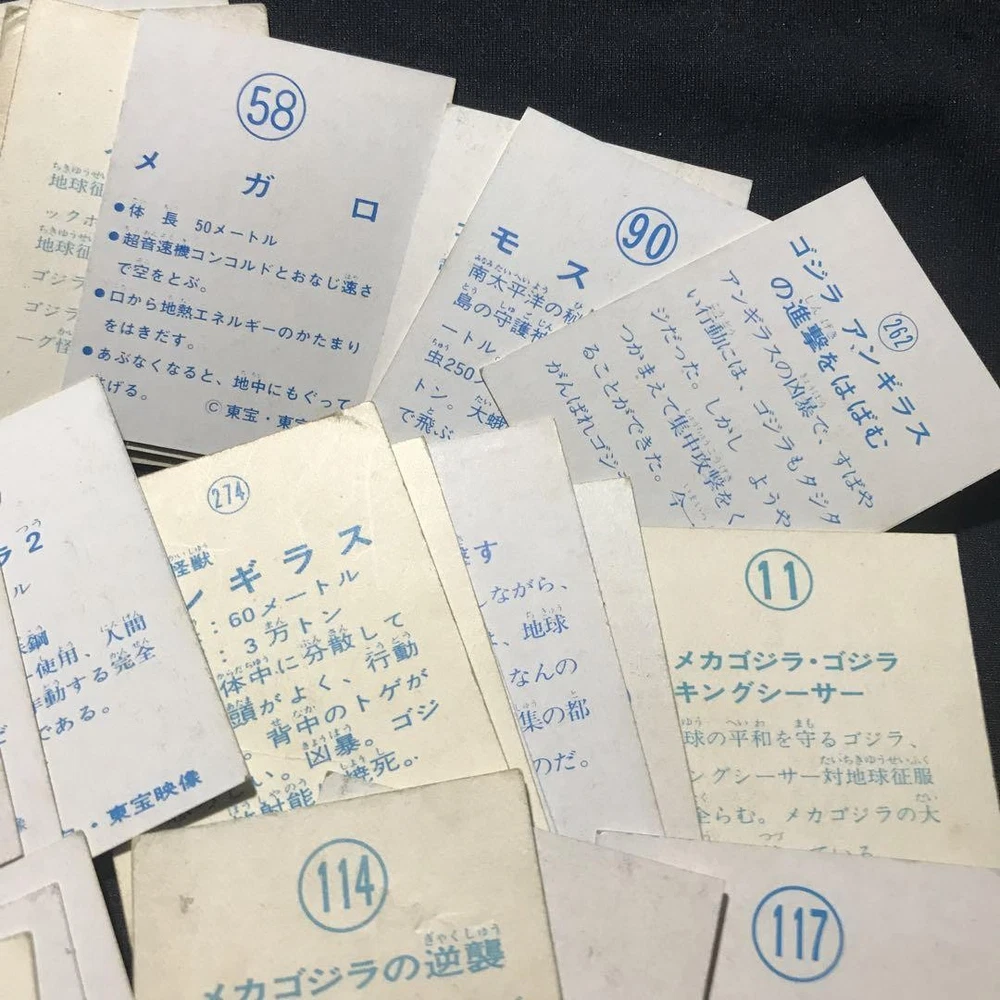 58
メガロ
●体長 50メートル
●超音速機コンコルドとおなじ速さ
で空をとぶ。
●口から地熱エネルギーのかたまり
をはきだす。
●あぶなくなると、地中にもぐって
げる。
©東宝・東宝
地球征
ックホ
地球征
ゴジラ
ゴジラ
ーグ怪
90
モス
南太平洋の
島の守護神
ートル
虫250メ
トン。大蛾
で飛ぶ
262
ゴジラ アンギラス
の進撃をはばむ
アンギラスの凶暴で、すばや
い行動には、ゴジラもタジタ
ジだった。しかし ようや
つかまえて集中攻撃をく
ることができた。今
がんばれゴジラ
274
怪獣
ンギラス
：60メートル
：3万トン
体中に分散して
頭がよく、行動
。背中のトゲが
い。凶暴。ゴジ
放射能 焼死。
ラ2
ル
鋼
使用、人間
動する完全
である。
・東宝映像
す
しながら、
、地球
なんの
集の都
のだ。
11
メカゴジラ・ゴジラ
キングシーサー
球の平和を守るゴジラ、
ングシーサー対地球征服
らむ。メカゴジラの大
ている
114
メカゴジラの逆襲
117